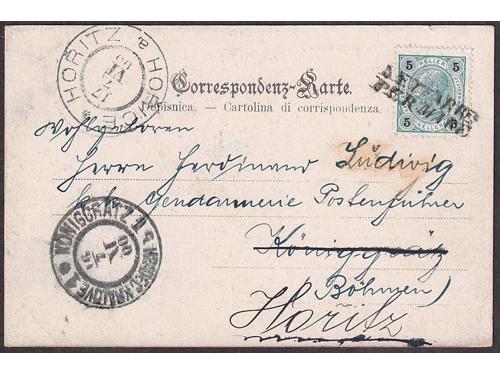 HORITZ * HOŘICE
Correspondenz-Karte.
Dopisnica. — Cartolina di corrispondenza.
5 HELLER 5
5 HELLER 5
Wohlgeboren
Herrn Ferdinand Ludwig
k. k. Gendarmerie Postenführer
Königgrätz
(Böhmen)
Horitz
KÖNIGGRATZ 1
HRADEC KRÁLOVÉ 1